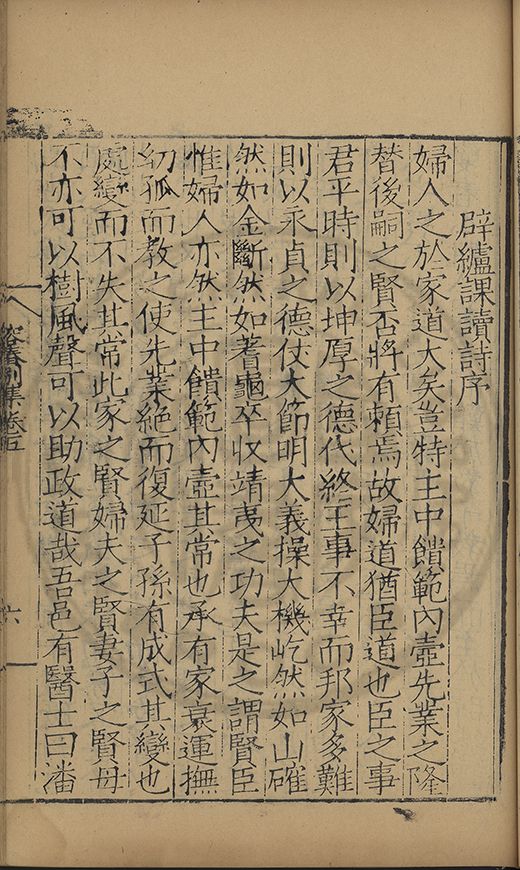 辟纑課讀詩序
婦人之於家道大矣豈特主中饋範內壼先業之隆
替後嗣之賢否將有賴焉故婦道猶臣道也臣之事
君平時則以坤厚之德代終王事不幸而邦家多難
則以永貞之德仗大節明大義操大機屹然如山確
然如金斷然如蓍龜卒收靖夷之功夫是之謂賢臣
惟婦人亦然主中饋範內壼其常也承有家衰運撫
幼孤而教之使先業絕而復延子孫有成式其變也
處變而不失其常此家之賢婦夫之賢妻子之賢母
不亦可以樹風聲可以助政道哉吾邑有醫士曰潘
容菴別集卷五
六